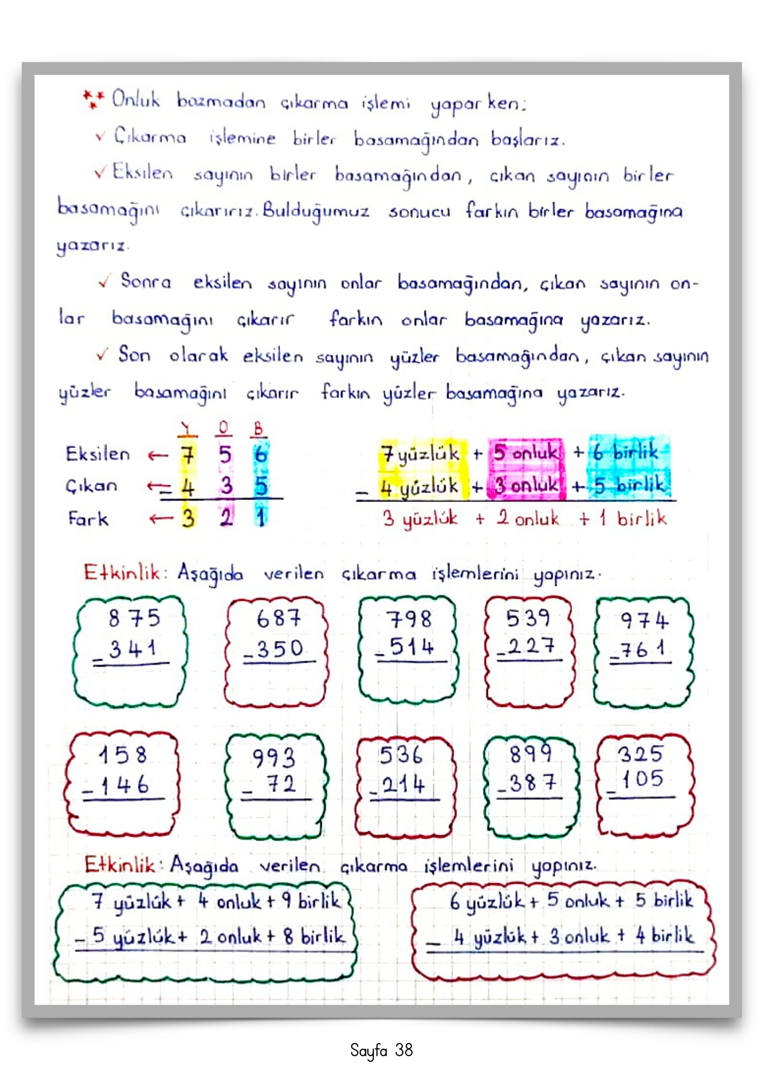 Onluk bozmadan çıkarma işlemi yaparken;
✓ Çıkarma işlemine birler basamağından başlarız.
✓ Eksilen sayının birler basamağından, çıkan sayının birler
basamağını çıkarırız. Bulduğumuz sonucu farkın birler basamağına
yazarız.
✓ Sonra eksilen sayının onlar basamağından, çıkan sayının on-
lar basamağını çıkarır farkın onlar basamağına yazarız.
✓ Son olarak eksilen sayının yüzler basamağından, çıkan sayının
yüzler basamağını çıkarır farkın yüzler basamağına yazarız.
Y O B
Eksilen ← 7 5 6
Çıkan ← - 4 3 5
Fark ← 3 2 1
7 yüzlük + 5 onluk + 6 birlik
- 4 yüzlük + 3 onluk + 5 birlik
3 yüzlük + 2 onluk + 1 birlik
Etkinlik: Aşağıda verilen çıkarma işlemlerini yapınız.
875 687 798 539 974
-341 -350 -514 -227 -761
158 993 536 899 325
-146 - 72 -214 -387 -105
Etkinlik: Aşağıda verilen çıkarma işlemlerini yapınız.
7 yüzlük + 4 onluk + 9 birlik
- 5 yüzlük + 2 onluk + 8 birlik
6 yüzlük + 5 onluk + 5 birlik
- 4 yüzlük + 3 onluk + 4 birlik
Sayfa 38